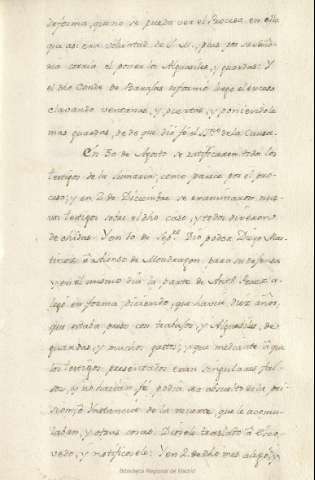 de forma, que no se pueda ver el Proceso, en ella
que asi era voluntad de S. M., pues por su
corria el poner la Alguaciles, y guardas: Y
el dho Conde de Barajas informo luego el suceso
clavando ventanas, y puertas, y poniendole
mas guardas, de que dió fé el de la Causa.
En 30 de Agosto se ratificaron todos los
testigos de la sumaria, como parece por el pro-
ceso; y en 2 de Diciembre se examinaron nue-
vos testigos sobre el dho caso, y todos dixeron
de ohidas. Y en 10 de Sepre. Dio poder Diego Mar-
tinez á Alonso de Mondragon, para su defensa
y en el mismo dia la parte de Antº Perez a-
legó en forma, diciendo, que havia diez años,
que estaba preso con trabajos, y Alguaciles, de
guardas, y muchos gastos; y que mediante á que
los testigos presentados eran singulares fal-
sos, y no hacian fé, podia ser absuelto de la pri-
sion, é Instancia de la muerte, que le acomu-
laban, y otras cosas: Diosele traslado á Esco-
vedo, y notificosele: Y en 2 de dho mes alegó, y
Biblioteca Regional de Madrid